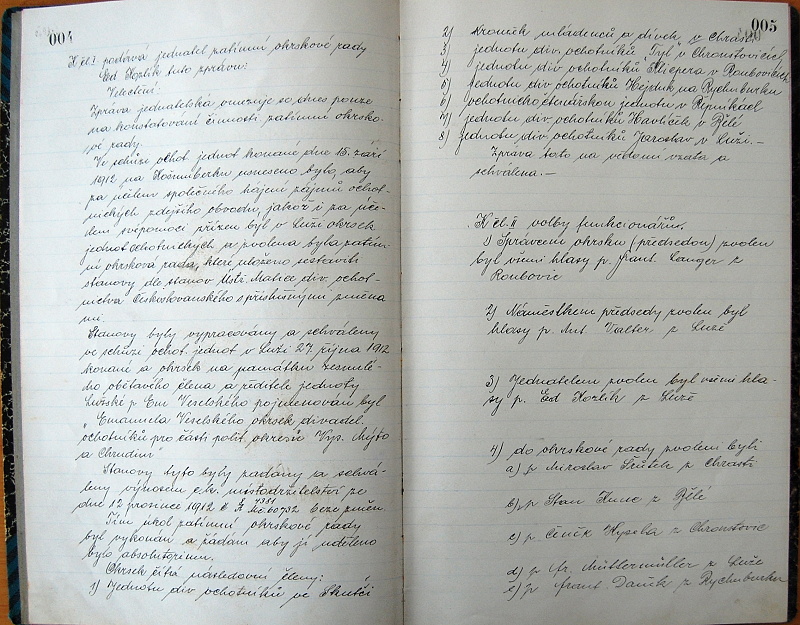 004
K čl. I podává jednatel zatímní okrskové rady
Ed Kozlík tuto zprávu:
Velectění:
Zpráva jednatelská omezuje se dnes pouze
na konstatování činnosti zatímní okrsko-
vé rady.
Ve schůzi ochot. jednot konané dne 15. září
1912 na Košumberku usneseno bylo, aby
za účelem společného hájení zájmů ochot-
nických zdejšího obvodu, jakož i za úče-
lem svépomoci zřízen byl v Luži okrsek
jednot ochotnických a zvolena byla zatím-
ní okrsková rada, které uloženo sestaviti
stanovy dle stanov Ústř. Matice div. ochot-
nictva Českoslovanského s příslušnými změna
mi.
Stanovy byly vypracovány a schváleny
ve schůzi ochot. jednot v Luži 27. října 1912
konané a okrsek na památku zesnulé-
ho obětavého člena a ředitele jednoty
Lužské p Em Veselského pojmenován byl
"Emanuela Veselského okrsek divadel.
ochotníků pro části polit. okresů Vys. Mýto
a Chrudim"
Stanovy tyto byly zadány a schvá-
leny výnosem c.k. místodržitelství ze
dne 12 prosince 1912 č beze změn.
Tím úkol zatímní okrskové rady
byl vykonán a žádám aby jí uděleno
bylo absolutorium.
Okrsek čítá následovní členy:
1) Jednotu div ochotníků ve Skutči
005
2) Kroužek mládenců a dívek v Chrasti
3) jednotu div. ochotníků "Tyl" v Chroustovicích
4) jednotu div ochotníků Klicpera v Roubovicích
5) Jednotu div. ochotníků Hejduk na Rychmburku
6) ochotnicko čtenářskou jednotu v Řepníkách
7) jednotu div. ochotníků Havlíček v Bělé
8) Jednotu div. ochotníků Jaroslav v Luži. —
Zpráva tato na vědomí vzata a
schválena. —
K čl. II volby funkcionářů.
1) Správcem okrsku (předsedou) zvolen
byl všemi hlasy p. Frant. Langer z
Roubovic
2) Náměstkem předsedy zvolen byl
hlasy p. Ant Valter z Luže
3) Jednatelem zvolen byl všemi hla-
sy p. Ed Kozlík z Luže
4) do okrskové rady zvoleni byli
a) p Miroslav z Chrasti
b) p Stan Kunc z Bělé
c) p Čeněk z Chroustovic
d) p Fr. Müttermüller z Luže
e) p Frant. Daněk z Rychmburku